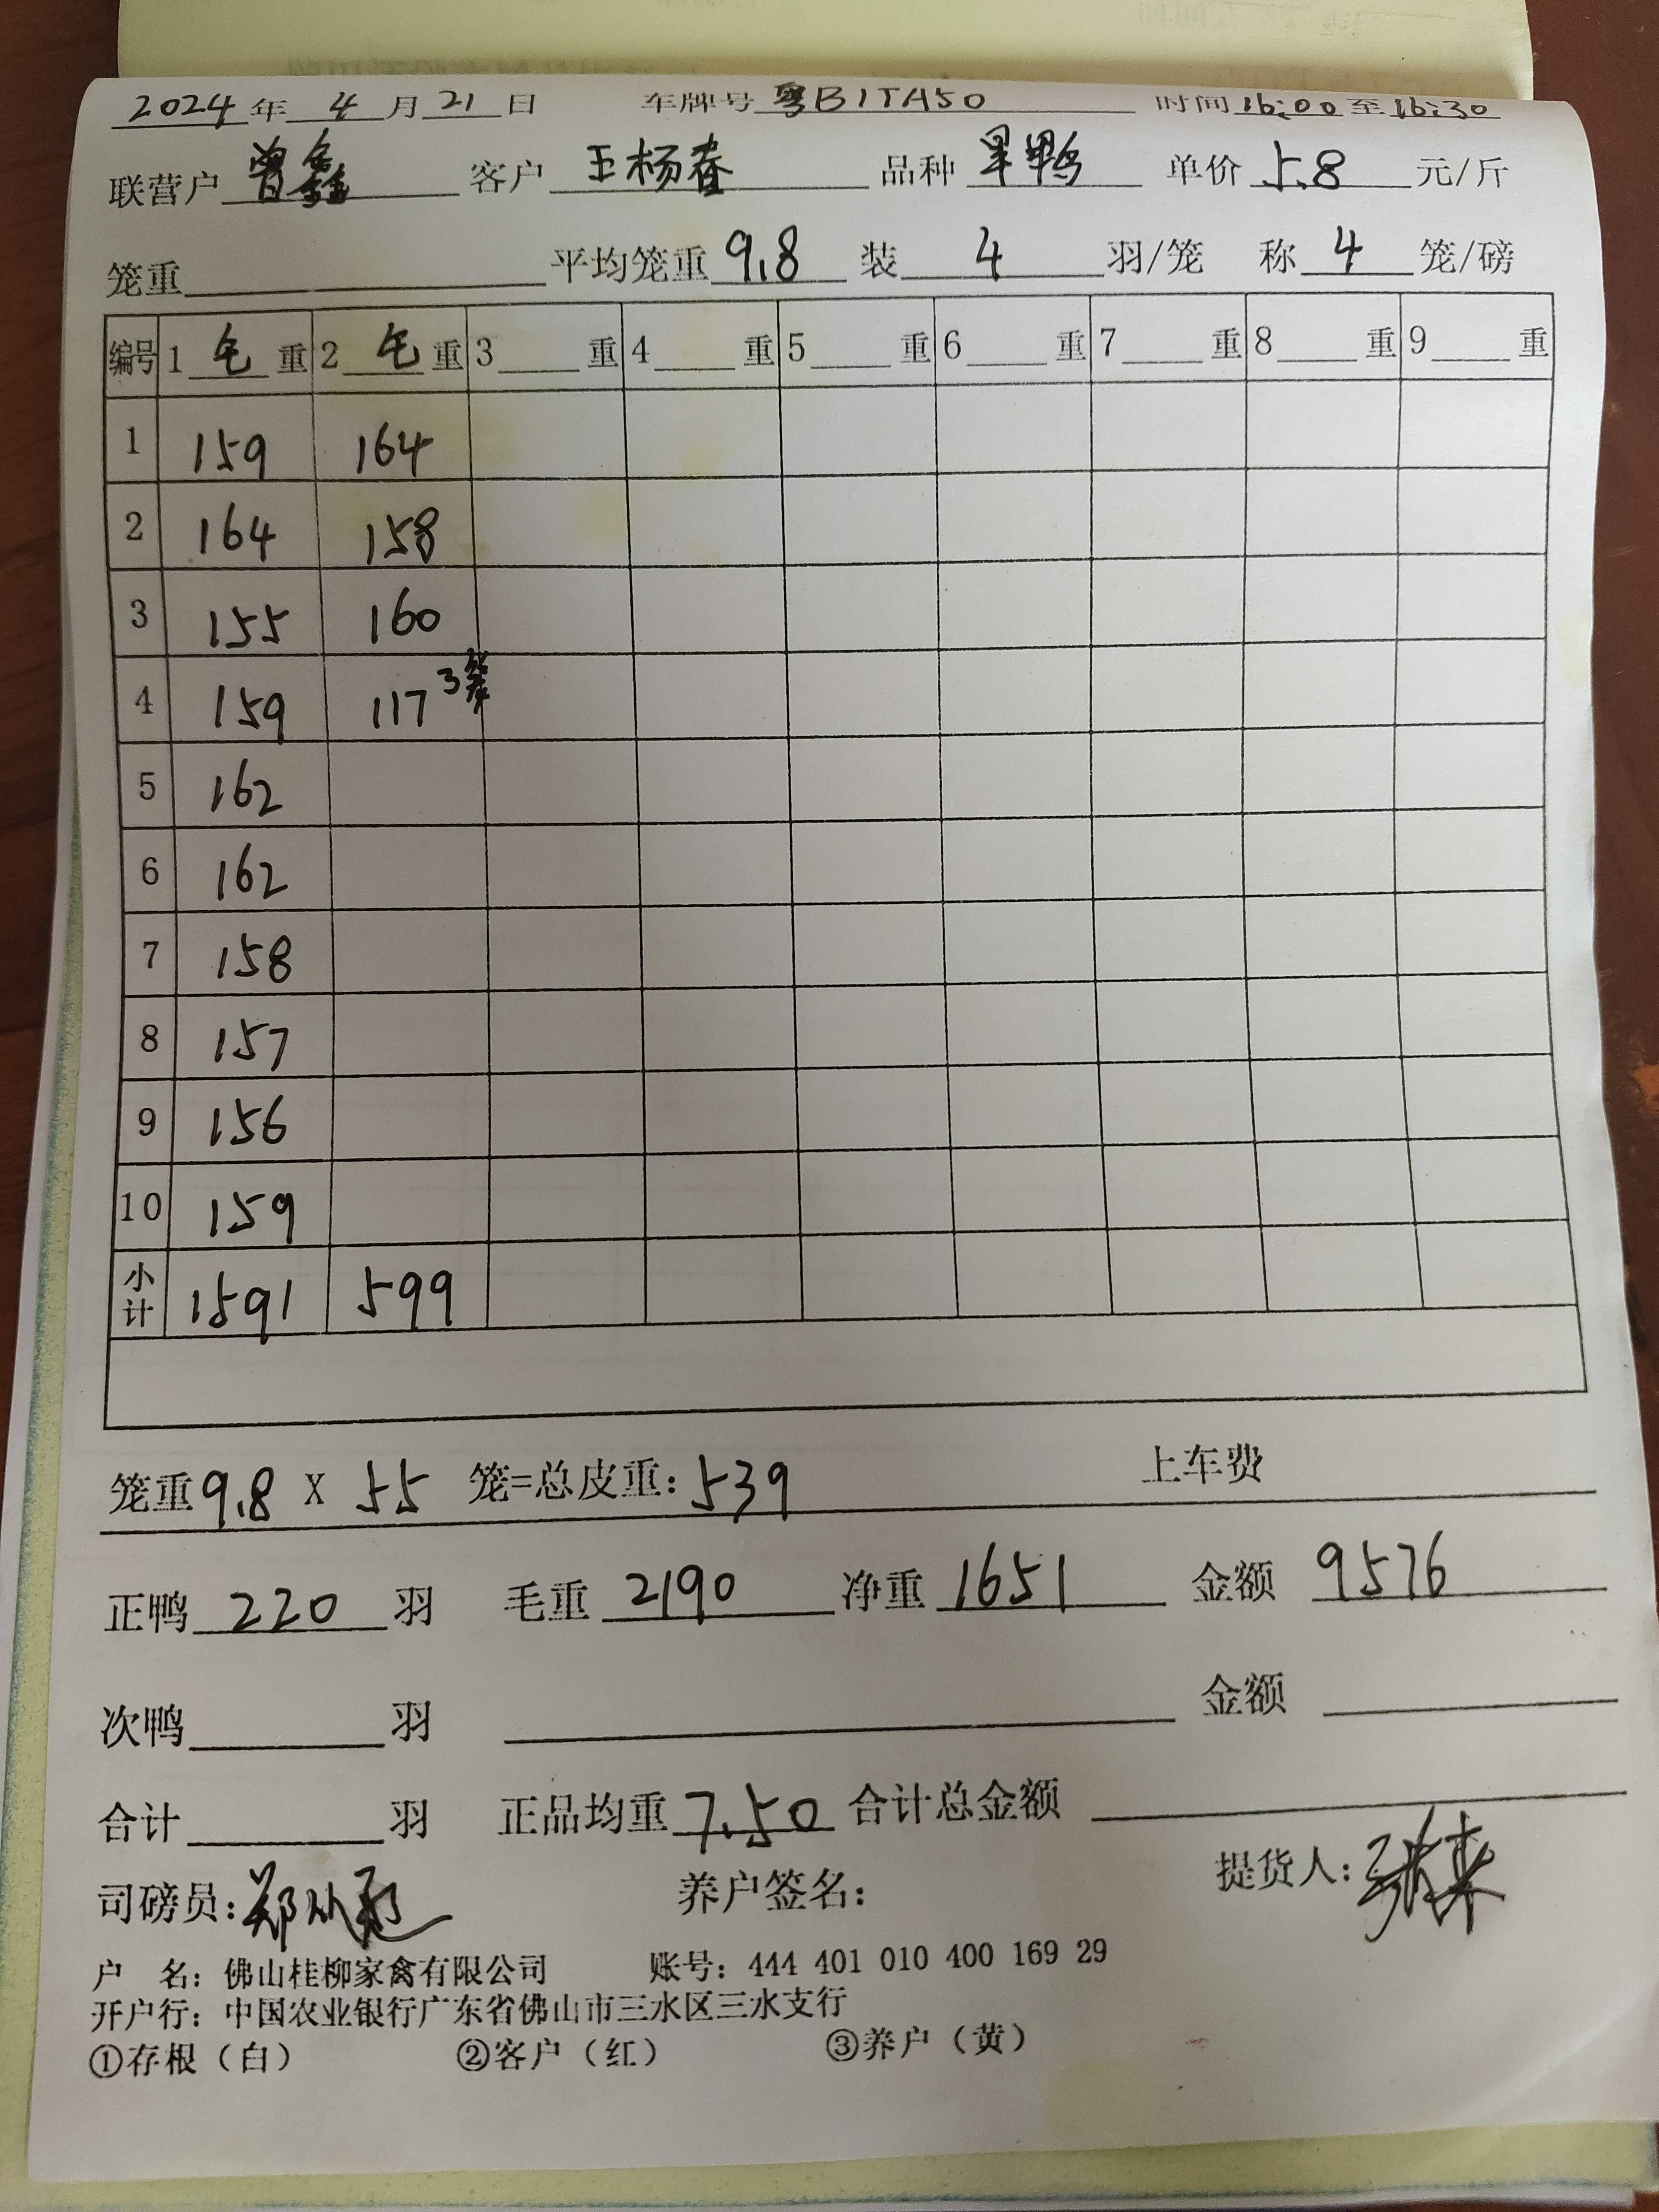 2024年 4月21日 车牌号 粤B1TA50 时间 16:00至16:30
联营户 曾鑫 客户 王杨春 品种 旱鸭 单价 5.8 元/斤
笼重 平均笼重 9.8 装 4 羽/笼 称 4 笼/磅
编号 1 毛 重 2 毛 重 3 重 4 重 5 重 6 重 7 重 8 重 9 重
1 159 164
2 164 158
3 155 160
4 159 117 3笼
5 162
6 162
7 158
8 157
9 156
10 159
小计 1591 599
笼重 9.8 X 55 笼=总皮重: 539 上车费
正鸭 220 羽 毛重 2190 净重 1651 金额 9576
次鸭 羽 金额
合计 羽 正品均重 7.50 合计总金额
司磅员: 养户签名: 提货人:
户 名: 佛山桂柳家禽有限公司 账号: 444 401 010 400 169 29
开户行: 中国农业银行广东省佛山市三水区三水支行
①存根（白） ②客户（红） ③养户（黄）